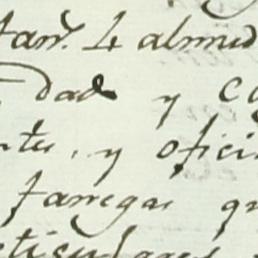 fan.s 4 almud
dad y co
ntes, y ofici
fanegas qu
ticulares